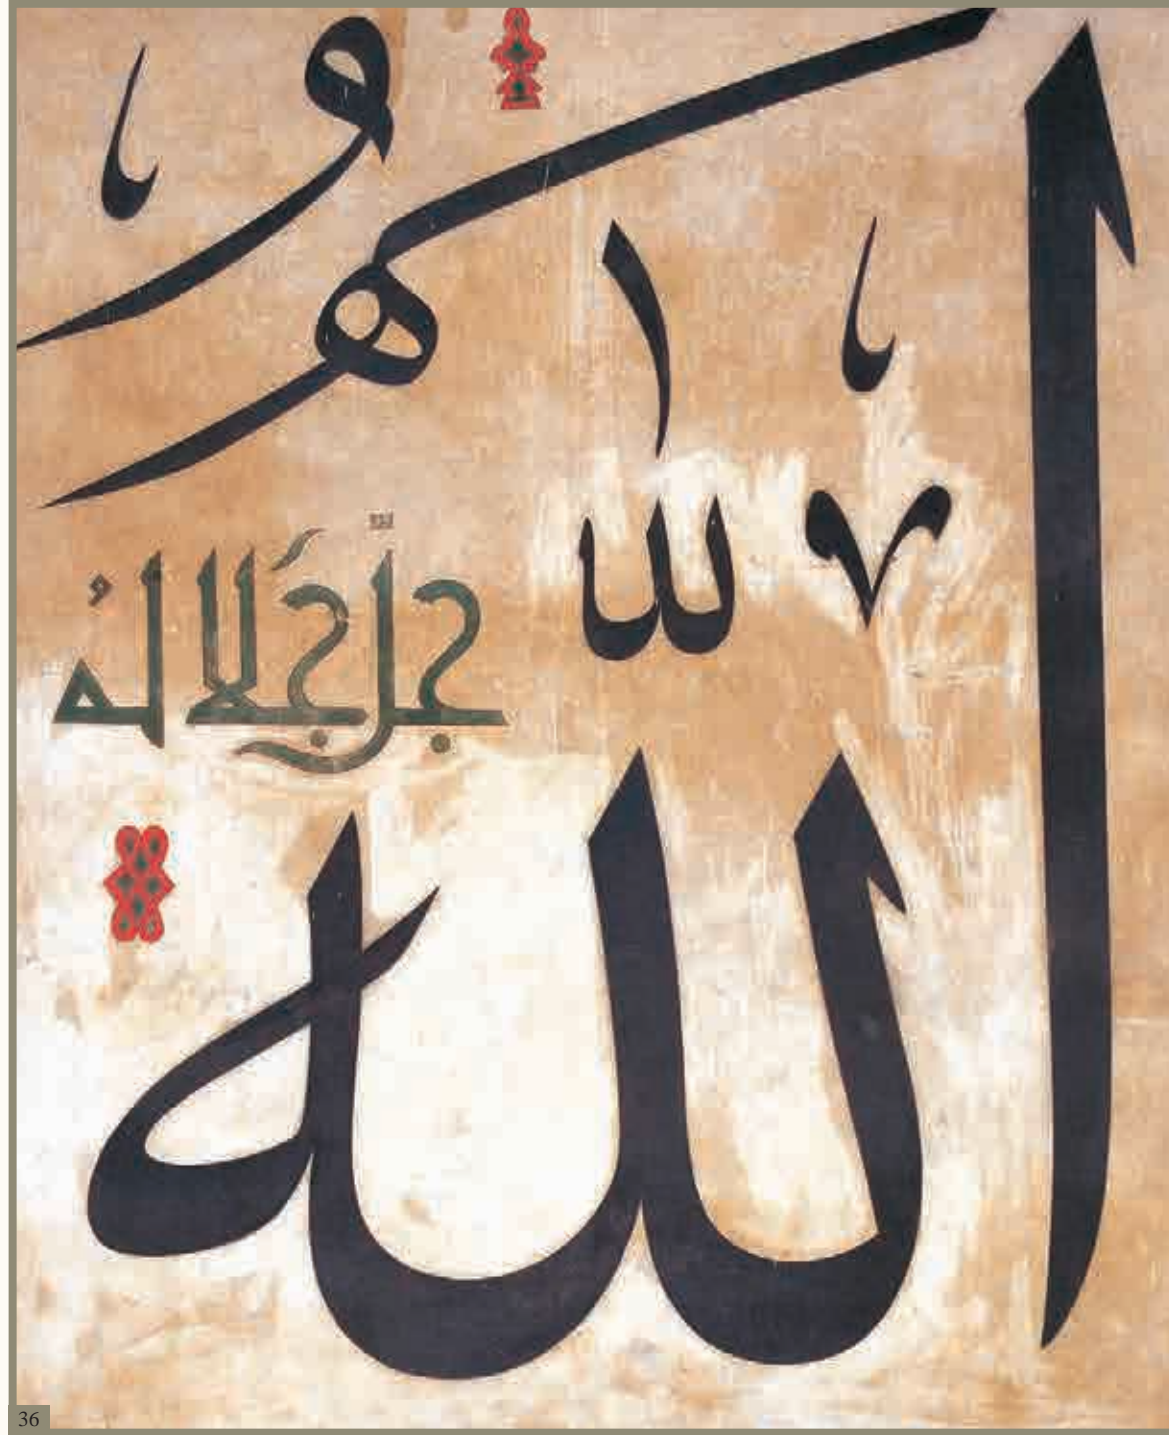 الله
جل جلاله
36